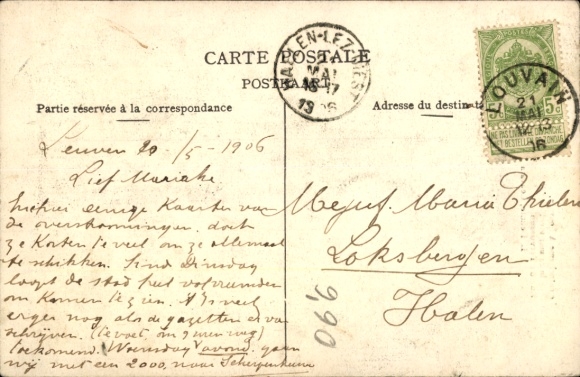 CARTE POSTALE
POSTKAART
Partie réservée à la correspondance
Adresse du destinat
LOUVAIN
21
MAI
12-13
MAI
1906
5
NE PAS LIVRER
Leuven 20/5-1906
Lief Marieke
Hierbij eenige Kaarten van
de overstroomingen, doch
ze Kosten te veel om ze allemaal
te schikken. Sind Dinsdag
loopt de stad vol vreemden
om komen te zien. 't Is veel
erger nog als de gazetten er van
schrijven. (te voet, om 9 uren weg)
toekomend Woensdag avond gaan
wij met een 2000, naar Scherpenheuvel
Mejuf. Maria Thielen
Loksbergen
Halen
9,90